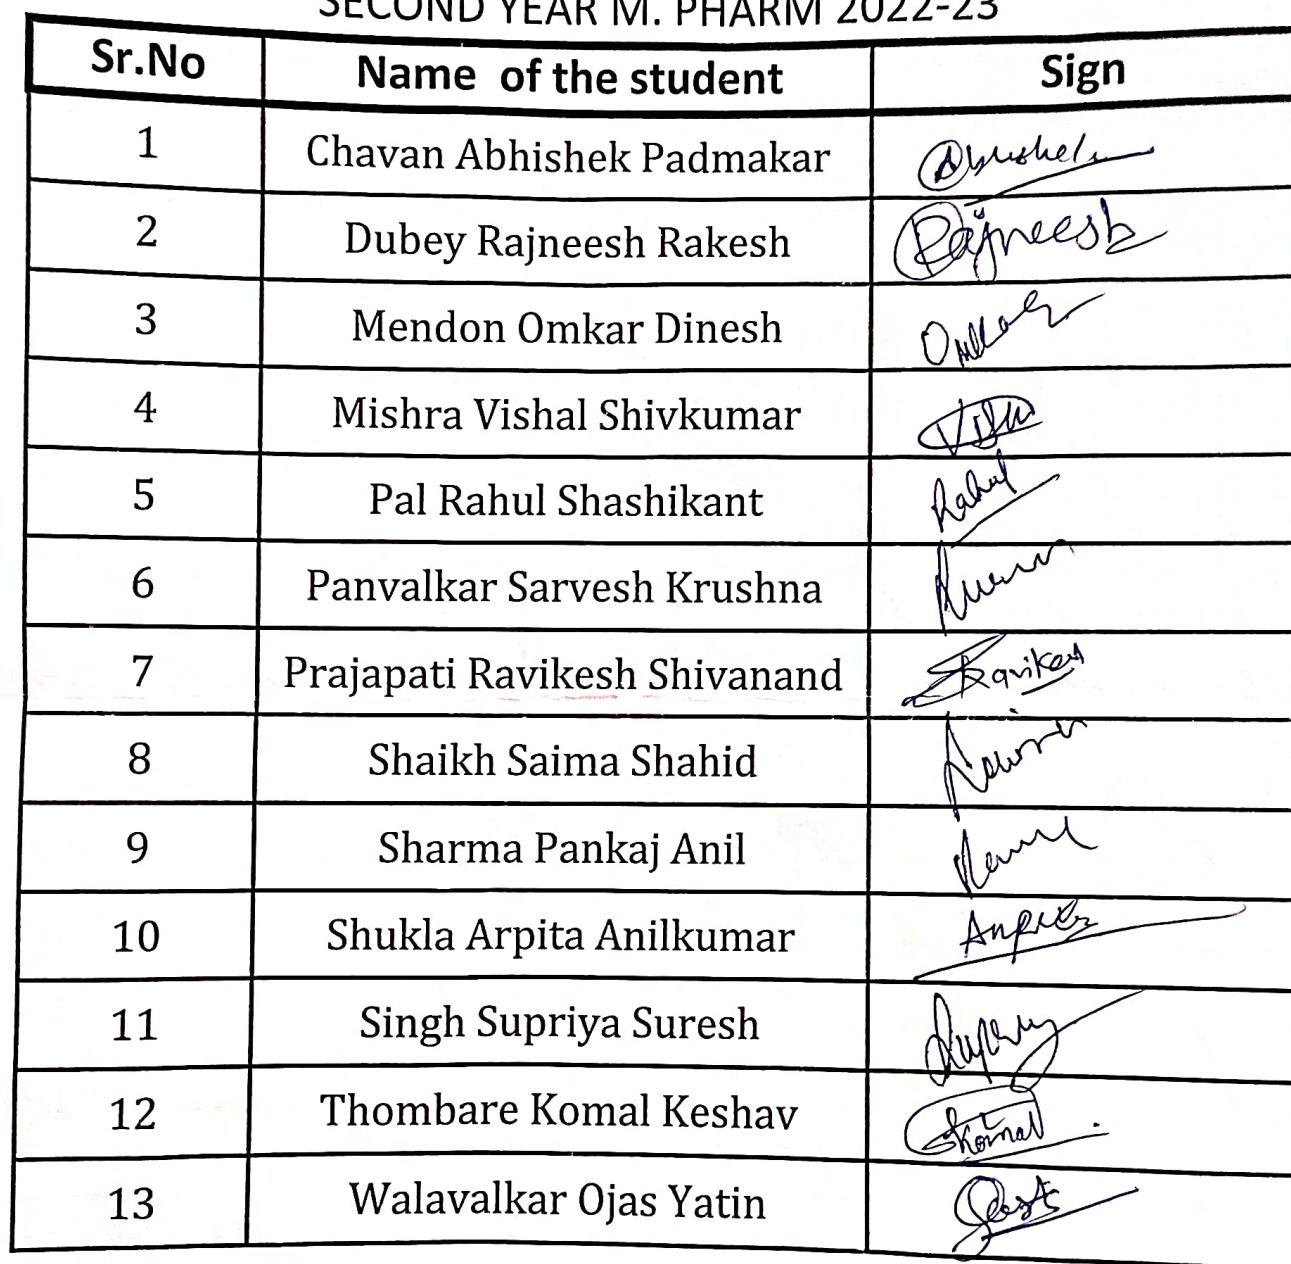 SECOND YEAR M. PHARM 2022-23
Sr.No Name of the student Sign
1 Chavan Abhishek Padmakar Abhishek
2 Dubey Rajneesh Rakesh Rajneesh
3 Mendon Omkar Dinesh Omkar
4 Mishra Vishal Shivkumar
5 Pal Rahul Shashikant Rahul
6 Panvalkar Sarvesh Krushna
7 Prajapati Ravikesh Shivanand Ravikesh
8 Shaikh Saima Shahid
9 Sharma Pankaj Anil
10 Shukla Arpita Anilkumar
11 Singh Supriya Suresh
12 Thombare Komal Keshav Komal
13 Walavalkar Ojas Yatin